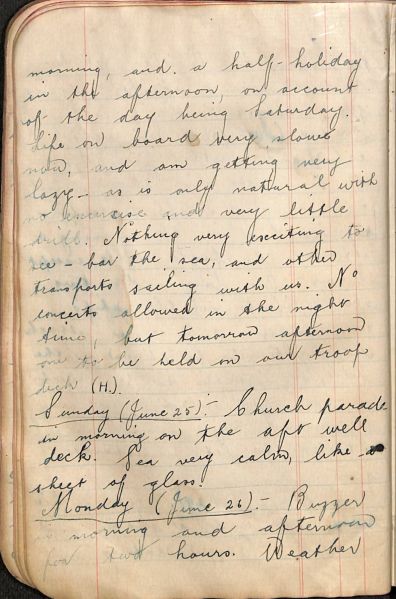 morning, and. a half-holiday
in the afternoon, on account
of the day being Saturday.
Life on board very slow
now, and am getting very
lazy - as is only natural with
no exercise and very little
drill. Nothing very exciting to
see - bar the sea, and other
transports sailing with us. No
concerts allowed in the night
time, but tomorrow afternoon
one to be held on our troop
deck (H.).
Sunday (June 25):- Church parade
in morning on the aft well
deck. Sea very calm, like a
sheet of glass.
Monday (June 26):- Buzzer
morning and afternoon
for two hours. Weather